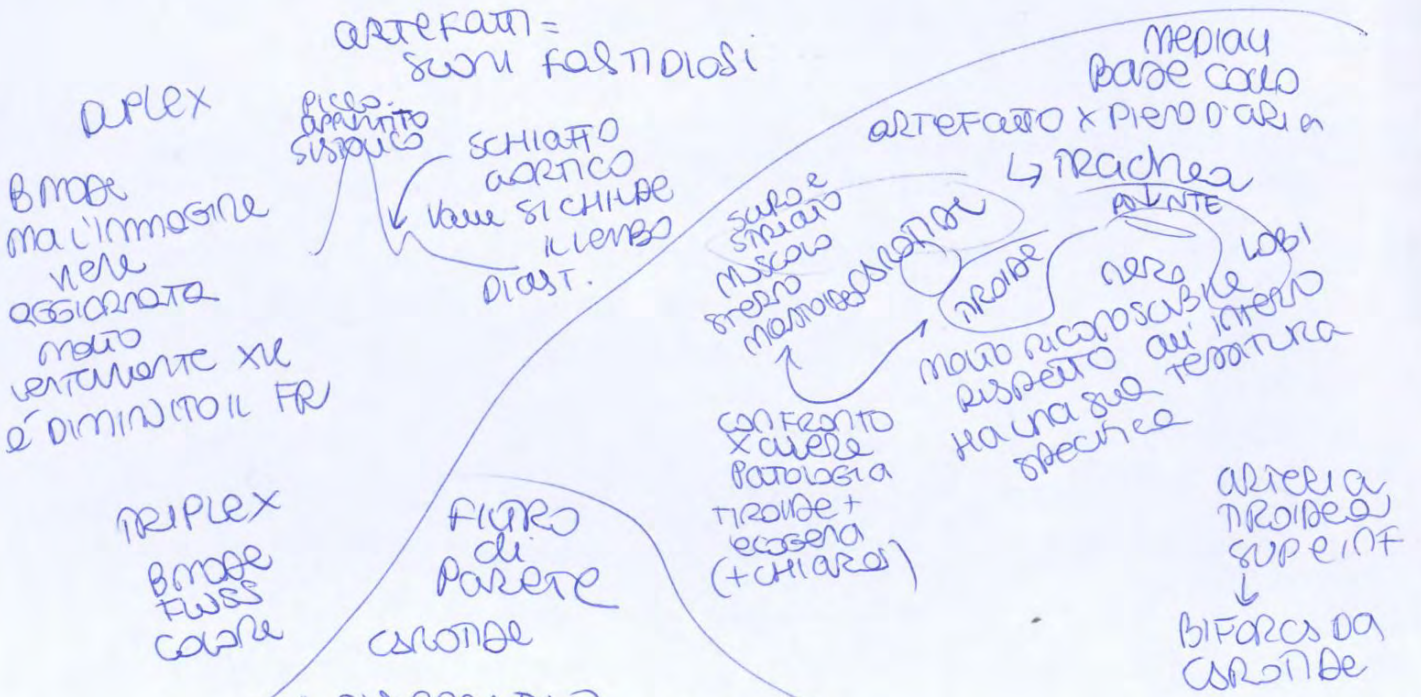 ARTEFATTI =
SUONI FASTIDIOSI
DUPLEX
B MODE
MA L'IMMAGINE
VIENE
AGGIORNATA
MOLTO
LENTAMENTE XKE
È DIMINUITO IL FR
PICCO
APPUNTITO
SISTOLICO
SCHIAFFO
AORTICO
SI CHIUDE
IL LEMBO
DIAST.
TRIPLEX
B MODE
FLUSSO
COLORE
FILTRO
di
PARETE
CAROTIDE
MEDIALI
BASE COLLO
ARTEFATTO X PIENO D'ARIA
↳ TRACHEA
SCURO E
STRIATO
MUSCOLO
STERNO
MASTOIDEO
CAROTIDE
TIROIDE
LOBI
NERO
MOLTO RICONOSCIBILE
RISPETTO ALL'INTERNO
HA UNA SUA TESSITURA
SPECIFICA
CONFRONTO
X AVERE
PATOLOGIA
TIROIDE +
ECOGENA
(+ CHIARA)
ARTERIA
TIROIDEA
SUP e INF
↓
BIFORCA DA
CAROTIDE